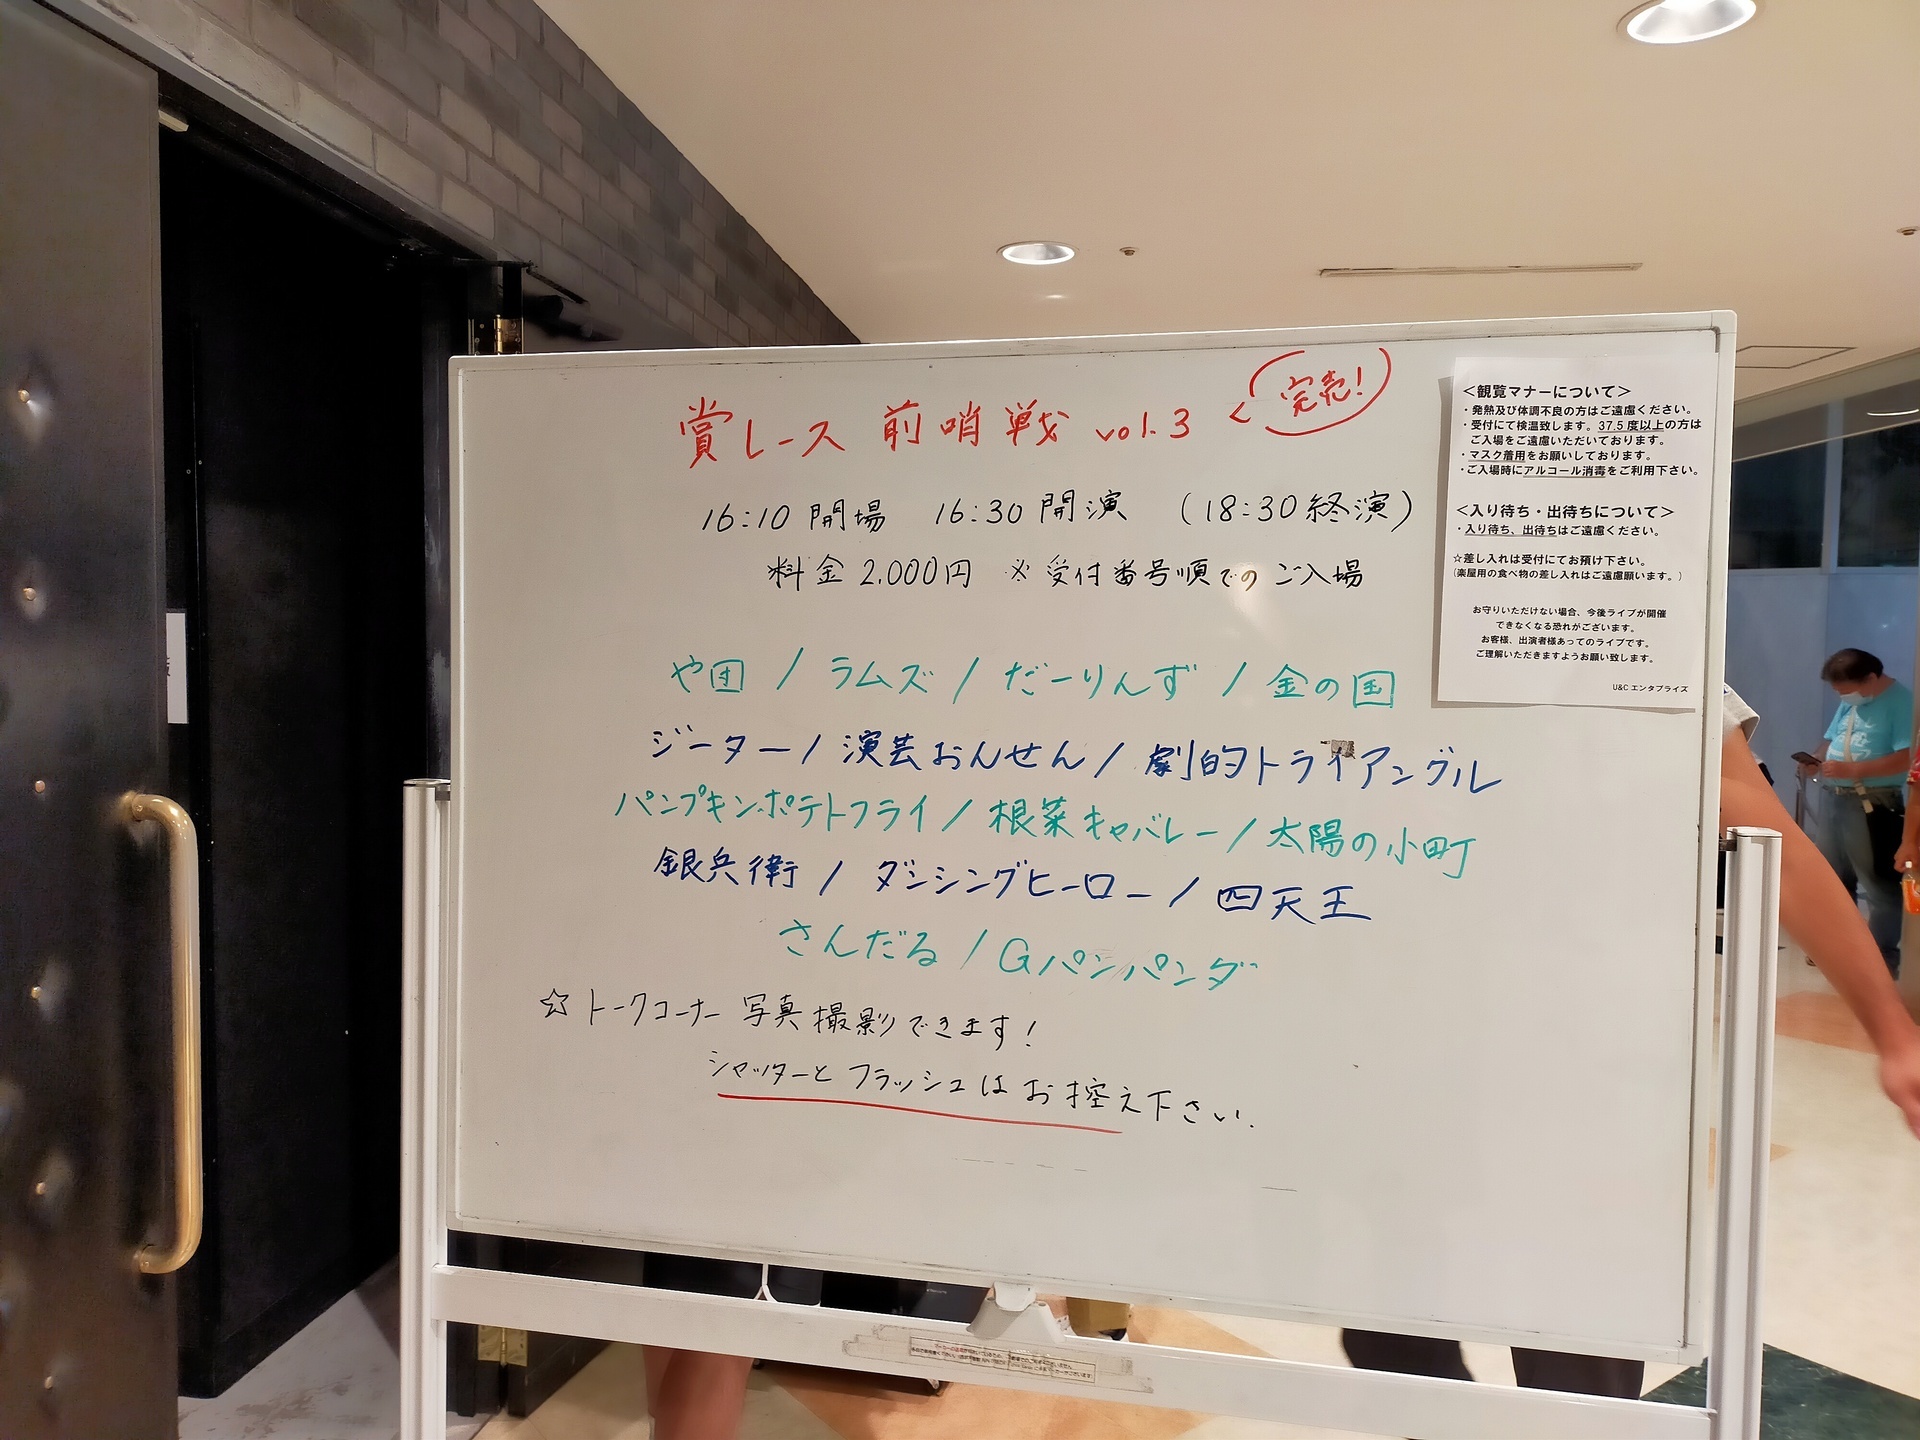 賞レース 前哨戦 vol.3 < 完売!
16:10 開場 16:30 開演 (18:30 終演)
料金 2.000円 ※受付番号順でのご入場
や団 / ラムズ / だーりんず / 金の国
ジーター / 演芸おんせん / 劇的トライアングル
パンプキンポテトフライ / 根菜キャバレー / 太陽の小町
銀兵衛 / ダンシングヒーロー / 四天王
さんだる / Gパンパンダ
☆トークコーナー 写真撮影できます!
シャッターとフラッシュはお控え下さい.
<観覧マナーについて>
・発熱及び体調不良の方はご遠慮ください。
・受付にて検温致します。37.5度以上の方は
ご入場をご遠慮いただいております。
・マスク着用をお願いしております。
・ご入場時にアルコール消毒をご利用下さい。
<入り待ち・出待ちについて>
・入り待ち、出待ちはご遠慮ください。
☆差し入れは受付にてお預け下さい。
(楽屋用の食べ物の差し入れはご遠慮願います。)
お守りいただけない場合、今後ライブが開催
できなくなる恐れがございます。
お客様、出演者様あってのライブです。
ご理解いただきますようお願い致します。
U&C エンタプライズ